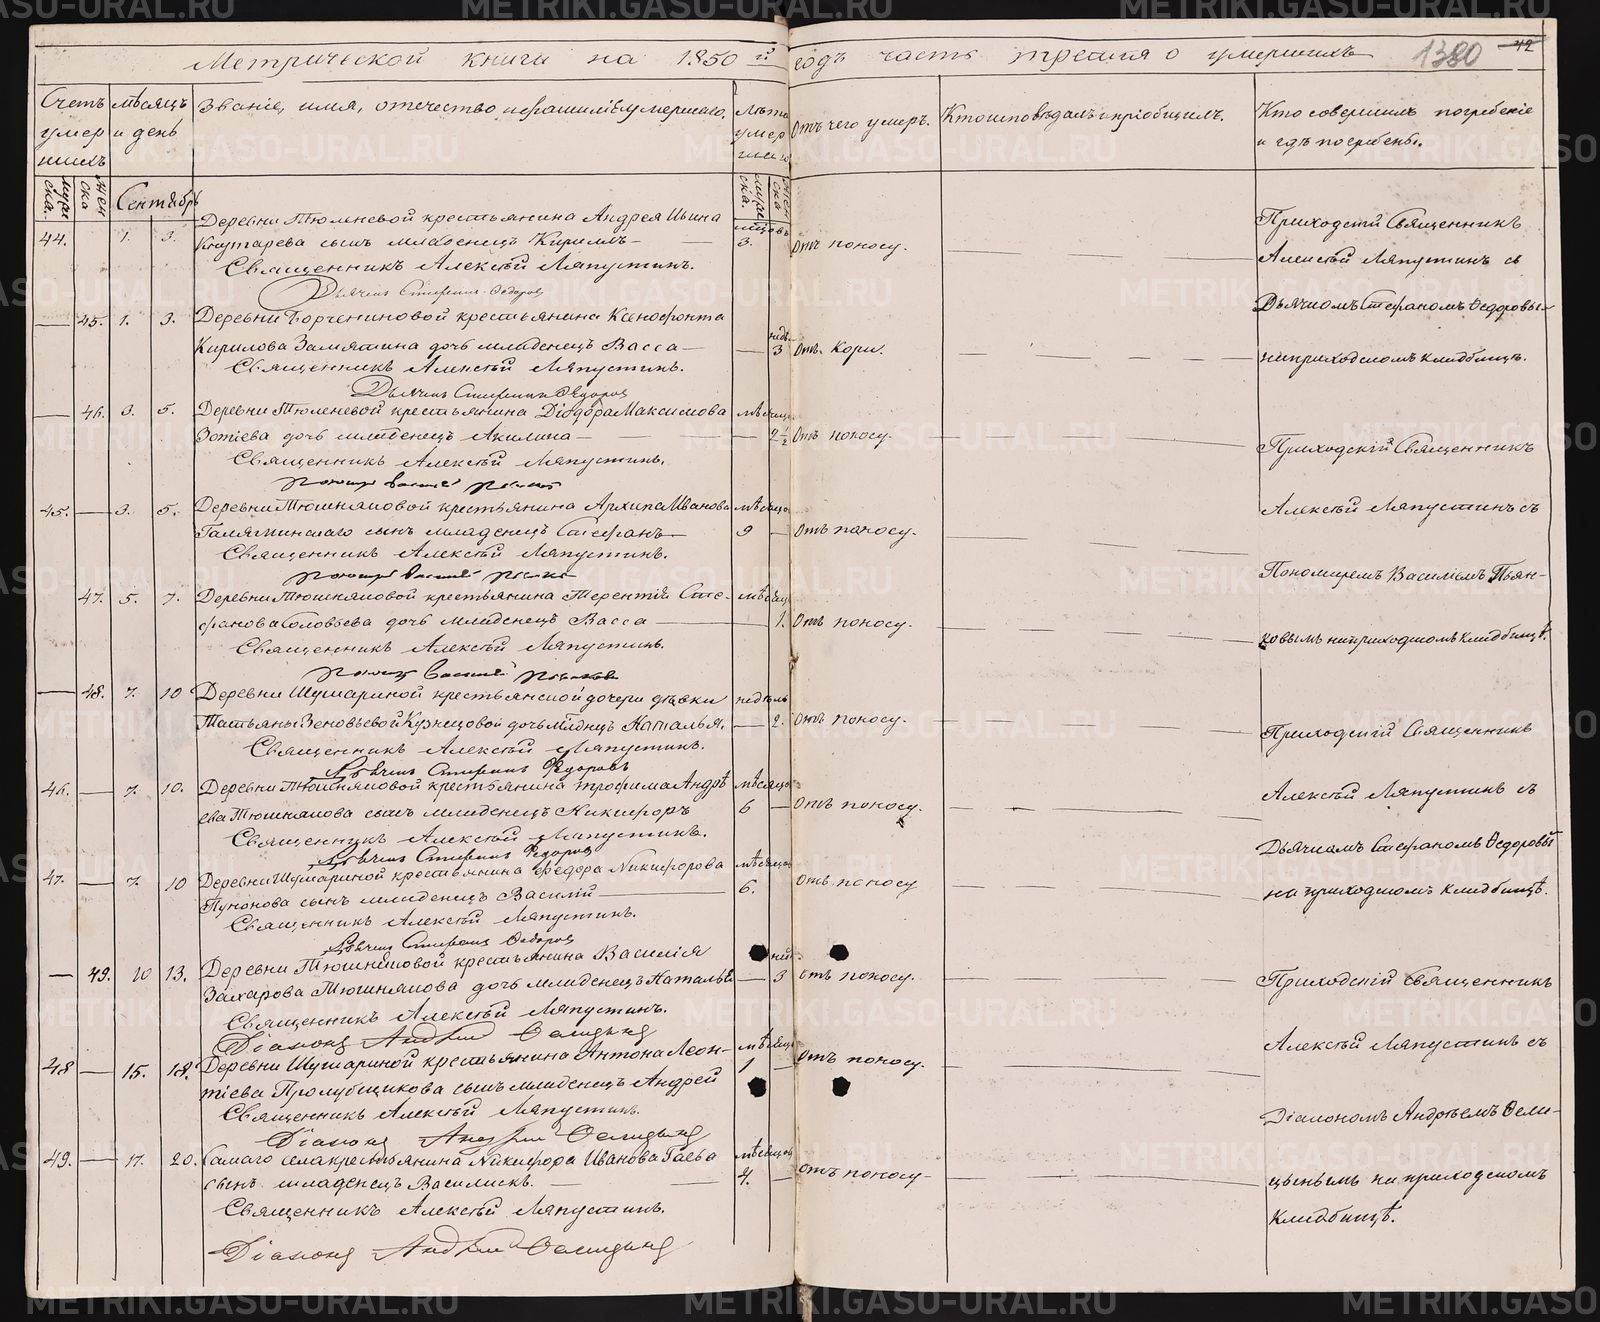 Метрической книги на 1850 й годъ часть третія о умершихъ
1380
42
Счетъ умер шихъ
мѣсяцъ и день
Званіе, имя, отечество и фамилія умершаго.
Лѣта умер шаго
Отъ чего умеръ.
Кто исповѣдалъ и пріобщилъ.
Кто совершилъ погребеніе
и гдѣ погребены.
муже ска.
жен ска
Сентябрь
муже ска.
жен ска
44. 1. 3. Деревни Тюленевой крестьянина Андрея Ильина
сынъ младенецъ Кириллъ — 3. Отъ поносу.
Священникъ Алексѣй Ляпустинъ.
Дьячекъ Стефанъ Федоровъ
Приходскій Священникъ
Алексѣй Ляпустинъ съ
Дьячкомъ Стефаномъ Ѳедоровы-
на приходскомъ кладбищѣ.
— 45. 1. 3. Деревни крестьянина Ксенофонта
Кирилова Замятина дочь младенецъ Васса — 3 Отъ Кори.
Священникъ Алексѣй Ляпустинъ.
Дьячекъ Стефанъ Ѳедоровъ
— 46. 3. 5. Деревни Тюленевой крестьянина Діодора Максимова мѣсяцъ
Зотѣева дочь младенецъ Акилина — 2 1/2 Отъ поносу.
Священникъ Алексѣй Ляпустинъ.
Пономарь Василій
Приходскій Священникъ
Алексѣй Ляпустинъ съ
Пономаремъ Василіемъ Пьян-
ковымъ на приходскомъ кладбищѣ.
45. — 3. 5. Деревни Тюшняковой крестьянина Архипа Иванова мѣсяцъ
сынъ младенецъ Стефанъ — 9 — Отъ поносу.
Священникъ Алексѣй Ляпустинъ.
Пономарь Василій
47. 5. 7. Деревни Тюшняковой крестьянина Терентія Сте- мѣсяц
фанова Соловьева дочь младенецъ Васса — 1. Отъ поносу.
Священникъ Алексѣй Ляпустинъ.
Пономарь Василій
— 48. 7. 10 Деревни Шумариной крестьянской дочери дѣвки недѣль
Татьяны Зеновьевой Кузнецовой дочь младнцъ Наталья. — 2. Отъ поносу.
Священникъ Алексѣй Ляпустинъ.
Дьячекъ Стефанъ Ѳедоровъ
Приходскій Священникъ
Алексѣй Ляпустинъ съ
Дьячкомъ Стефаномъ Ѳедоровы
на приходскомъ кладбищѣ.
46. — 7. 10. Деревни Тюшняковой крестьянина Трофима Андрѣ мѣсяцъ
ева Тюшнякова сынъ младенецъ Никифоръ 6 — Отъ поносу.
Священникъ Алексѣй Ляпустинъ.
Дьячекъ Стефанъ Ѳедоровъ
47. — 7. 10 Деревни Шумариной крестьянина Федора Никифорова мѣсяцов
сынъ младенецъ Василій — 6. Отъ поносу
Священникъ Алексѣй Ляпустинъ.
Дьячекъ Стефанъ Ѳедоровъ
— 49. 10 13. Деревни Тюшняковой крестьянина Василія
Захарова Тюшнякова дочь младенецъ Наталья — 3 отъ поносу.
Священникъ Алексѣй Ляпустинъ.
Діаконъ Андрей
Приходскій Священникъ
Алексѣй Ляпустинъ съ
Діакономъ Андреемъ Ѳели-
цынымъ на приходскомъ
кладбищѣ.
48 — 15. 18. Деревни Шумариной крестьянина Антона Леон- мѣсяцъ
тіева Пролубщикова сынъ младенецъ Андрей 1 — Отъ поносу.
Священникъ Алексѣй Ляпустинъ.
Діаконъ Андрей
49. — 17. 20. Самаго села крестьянина Никифора Иванова Гаева мѣсяцов
сынъ младенецъ Василискъ. — 4. — Отъ поносу —
Священникъ Алексѣй Ляпустинъ.
Діаконъ Андрей
METRIKI.GASO-URAL.RU